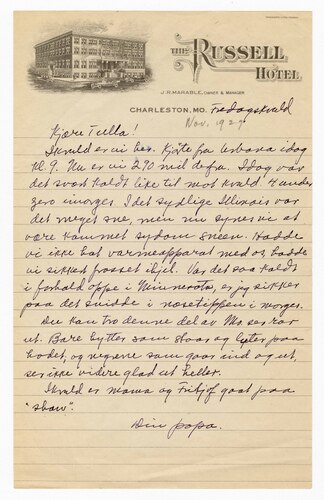 THE RUSSELL
HOTEL
J. R. MARABLE, OWNER & MANAGER
CHARLESTON, MO. Fredagskveld
Nov. 1927
Kjære Tulla!
Ikveld er vi her. Kjørte fra Urbana idag
kl. 9. Nu er vi 290 mil derfra. Idag var
det svært koldt like til mot kveld 4 under
zero imorges. I det sydlige Illinois var
det meget sne, men nu synes vi at
være kommet sydom sneen. Hadde
vi ikke hat varmeapparat med os, hadde
vi sikkert frosset ihjel. Var det saa koldt
i forhold oppe i Minnesota, er jeg sikker
paa det snidde i næsetippen i morges.
Du kan tro denne del av Mo ser rar
ut. Bare hytter som staar og paa
hodet, og negrene som gaar ind og ut,
ser ikke videre glad ut heller.
Ikveld er mama og Fritjof gaat paa
"show".
Din papa.